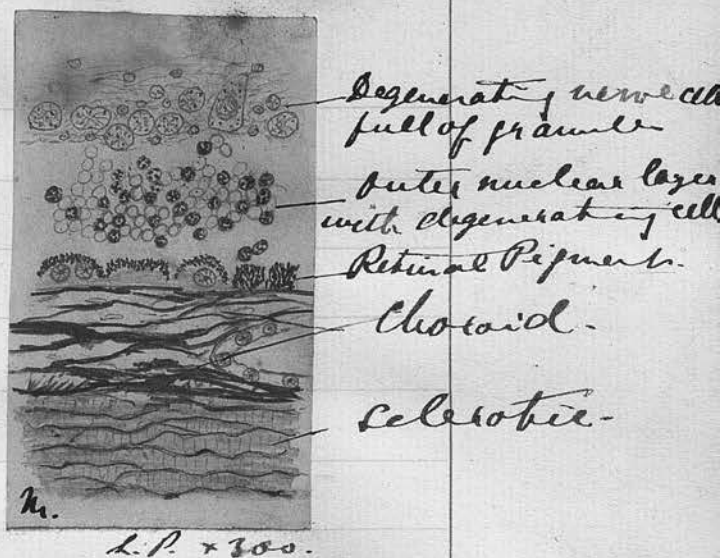 Degenerating nerve cells
full of granules
outer nuclear layer
with degenerating cells
Retinal Pigment.
Choroid.
Sclerotic.
M.
L.P. x 300.